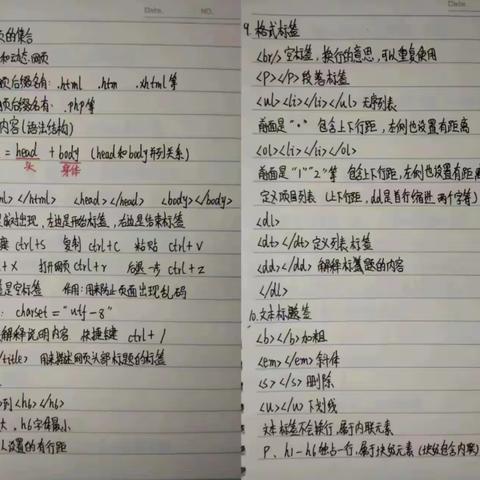 Date. NO.
页的集合
和动态网页
页后缀名有: .html .htm .xhtml等
页后缀名有: .php等
内容(语法结构)
= head + body (head和body并列关系)
头 身体
ml> </html> <head> </head> <body> </body>
是成对出现, 左边是开始标签, 右边是结束标签
键 ctrl+S 复制 ctrl+C 粘贴 ctrl+V
+X 打开网页 ctrl+r 后退一步 ctrl+z
是空标签 作用: 用来防止页面出现乱码
: charset="utf-8"
解释说明内容 快捷键 ctrl+/
/title> 用来描述网页头部标题的标签
到<h6></h6>
大, h6字体最小
认设置的有行距
Date.
9. 格式标签
<br/> 空标签, 换行的意思, 可以重复使用
<P></P> 段落标签
<ul><li></li></ul> 无序列表
前面是"·" 包含上下行距, 左侧也设置有距离
<ol><li></li></ol>
前面是"1""2"等 包含上下行距, 左侧也设置有距离
定义项目列表 (上下行距, dd是首行缩进 两个字符)
<dl>
<dt></dt> 定义列表标签
<dd></dd> 解释标题的内容
</dl>
10. 文本标签
<b></b> 加粗
<em></em> 斜体
<s></s> 删除
<u></u> 下划线
文本标签不会换行, 属于内联元素
P、h1-h6独占一行, 属于块级元素 (块级包含内联)